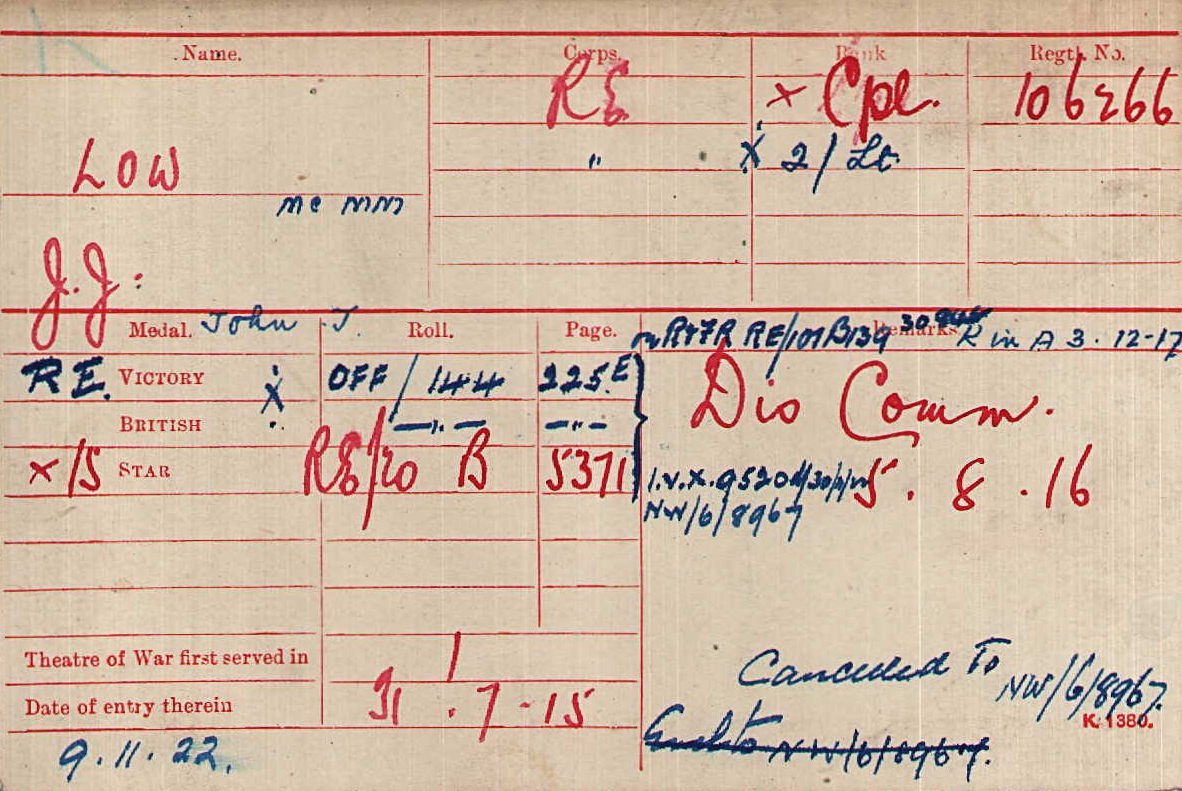 Name. Corps. Rank Regtl. No.
R E. × Cpl. 106266
LOW " X 2/Lt.
Mc MM
J. J.
John J.
Medal. Roll. Page. Remarks.
RE/101B139 R in A 3.12-17
RE. VICTORY X OFF/144 225E
Dis Comm.
BRITISH —"— —"—
× 15 STAR RE/20 B 5371
I.V.X. 9520
5.8.16
NW/6/8967
Theatre of War first served in 1
Cancelled To NW/6/8967.
Date of entry therein 31.7-15
K. 1380.
NW/6/8967.
9.11.22.